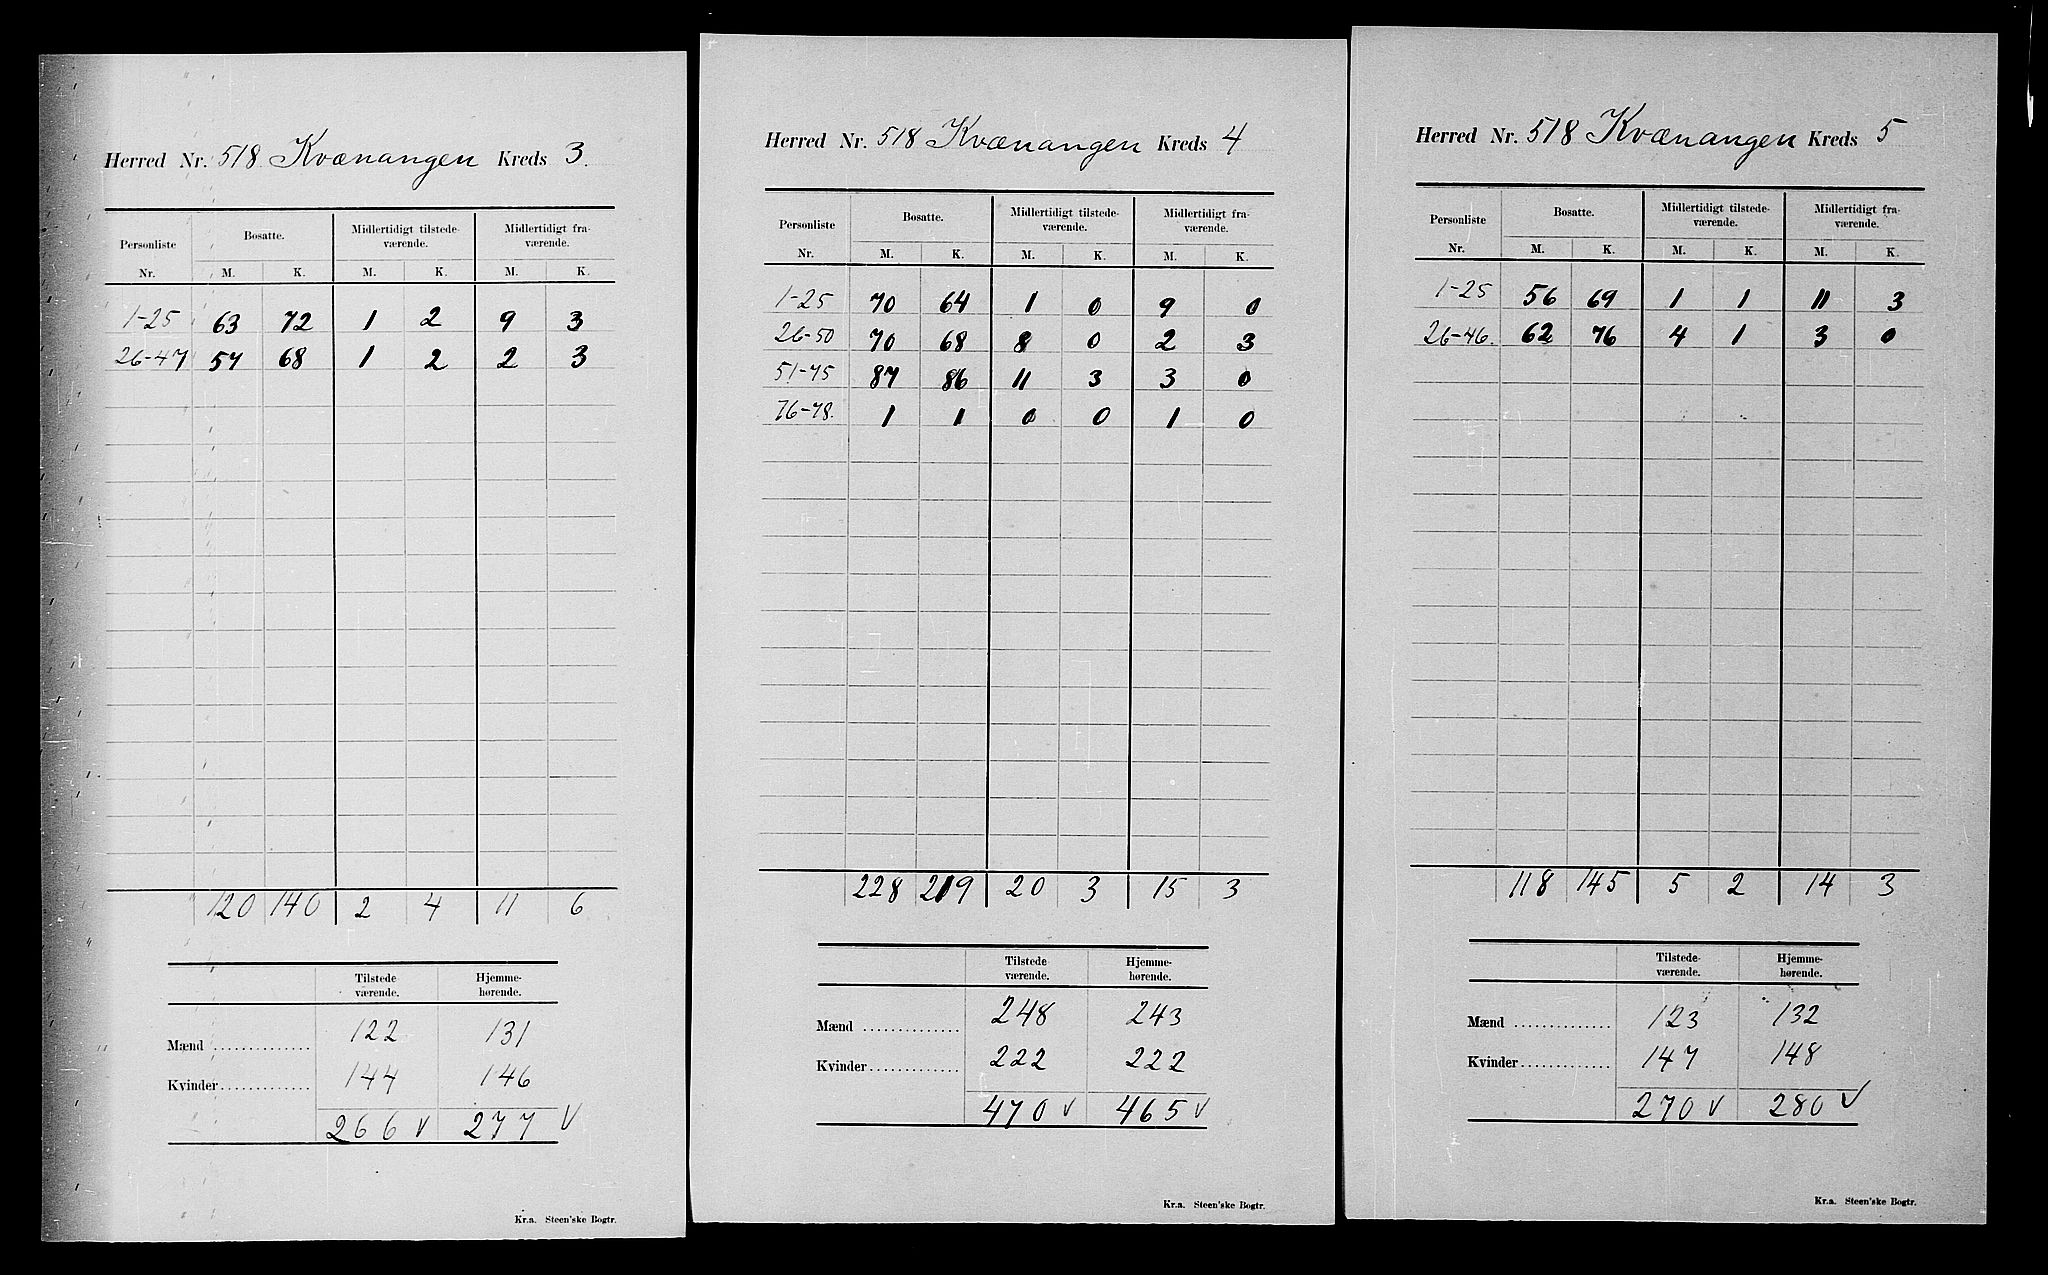 Herred Nr. 518 Kvænangen Kreds 3.
Personliste Nr. | Bosatte. | Midlertidigt tilstedeværende. | Midlertidigt fraværende.
M. K. M. K. M. K.
1-25 63 72 1 2 9 3
26-47 57 68 1 2 2 3
120 140 2 4 11 6
Tilstedeværende. Hjemmehørende.
Mænd 122 131
Kvinder 144 146
266 v 277 v
Kr.a. Steen'ske Bogtr.
Herred Nr. 518 Kvænangen Kreds 4
Personliste Nr. | Bosatte. | Midlertidigt tilstedeværende. | Midlertidigt fraværende.
M. K. M. K. M. K.
1-25 70 64 1 0 9 0
26-50 70 68 8 0 2 3
51-75 87 86 11 3 3 0
76-78. 1 1 0 0 1 0
228 219 20 3 15 3
Tilstedeværende. Hjemmehørende.
Mænd 248 243
Kvinder 222 222
470 v 465 v
Kr.a. Steen'ske Bogtr.
Herred Nr. 518 Kvænangen Kreds 5
Personliste Nr. | Bosatte. | Midlertidigt tilstedeværende. | Midlertidigt fraværende.
M. K. M. K. M. K.
1-25 56 69 1 1 11 3
26-46. 62 76 4 1 3 0
118 145 5 2 14 3
Tilstedeværende. Hjemmehørende.
Mænd 123 132
Kvinder 147 148
270 v 280 v
Kr.a. Steen'ske Bogtr.